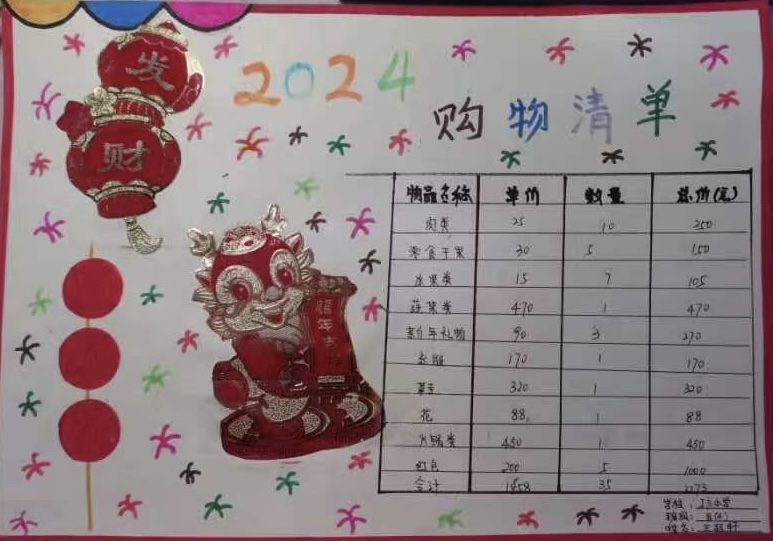 发
财
2024
购物清单
物品名称 单价 数量 总价(元)
肉类 25 10 250
零食干果 30 5 150
水果类 15 7 105
蔬菜类 470 1 470
新年礼物 90 3 270
衣服 170 1 170
320 1 320
花 88 1 88
火锅类 450 1 450
红包 200 5 1000
合计 35
学校：
班级：
姓名：